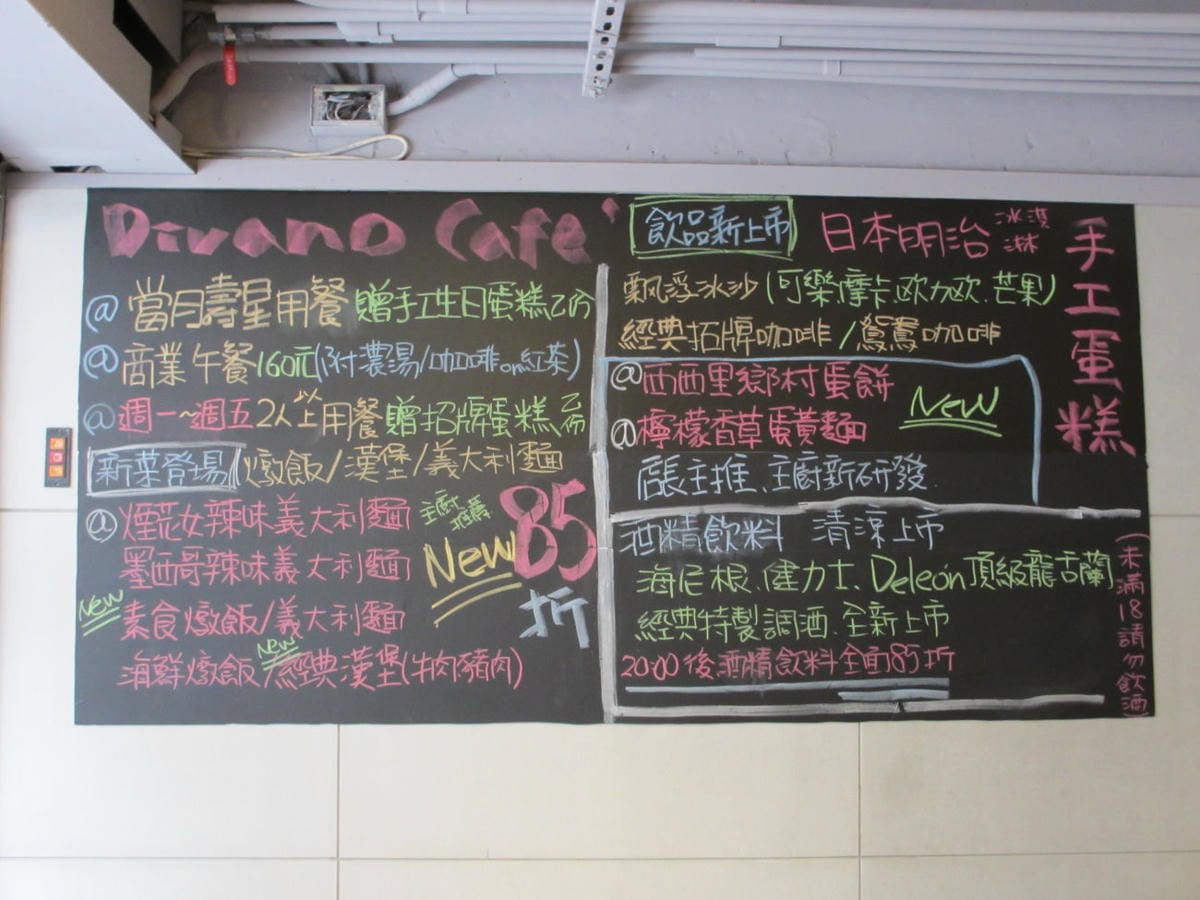 Divano Café
@當月壽星用餐贈手工生日蛋糕乙份
@商業午餐160元(附濃湯/咖啡or紅茶)
@週一~週五2人以上用餐贈招牌蛋糕乙份
新菜登場 燉飯/漢堡/義大利麵
@煙花女辣味義大利麵 主廚推薦
墨西哥辣味義大利麵 New
85折
New 素食燉飯/義大利麵
海鮮燉飯/New 經典漢堡(牛肉.豬肉)
飲品新上市 日本明治冰淇淋
飄浮冰沙(可樂.摩卡.歐力歐.芒果)
經典招牌咖啡/鴛鴦咖啡
@西西里鄉村蛋餅
@檸檬香草蛋黃麵
New
店長主推、主廚新研發.
酒精飲料 清涼上市
海尼根.健力士、Deleón頂級龍舌蘭
經典特製調酒.全新上市
20:00後酒精飲料全面85折
手工蛋糕
(未滿18請勿飲酒)